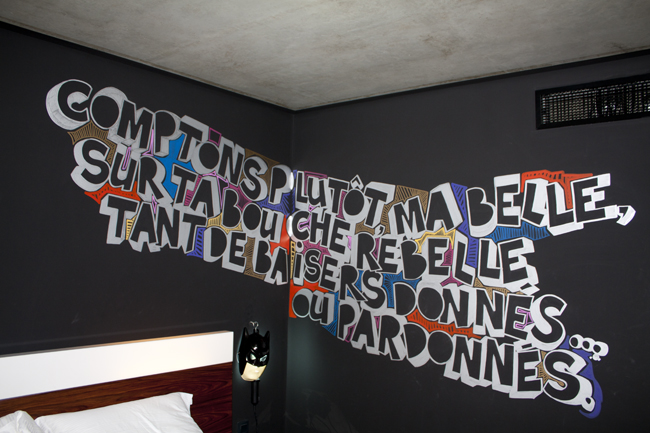 COMPTONS PLUTÔT, MA BELLE,
SUR TA BOUCHE REBELLE,
TANT DE BAISERS DONNÉS...
OU PARDONNÉS.